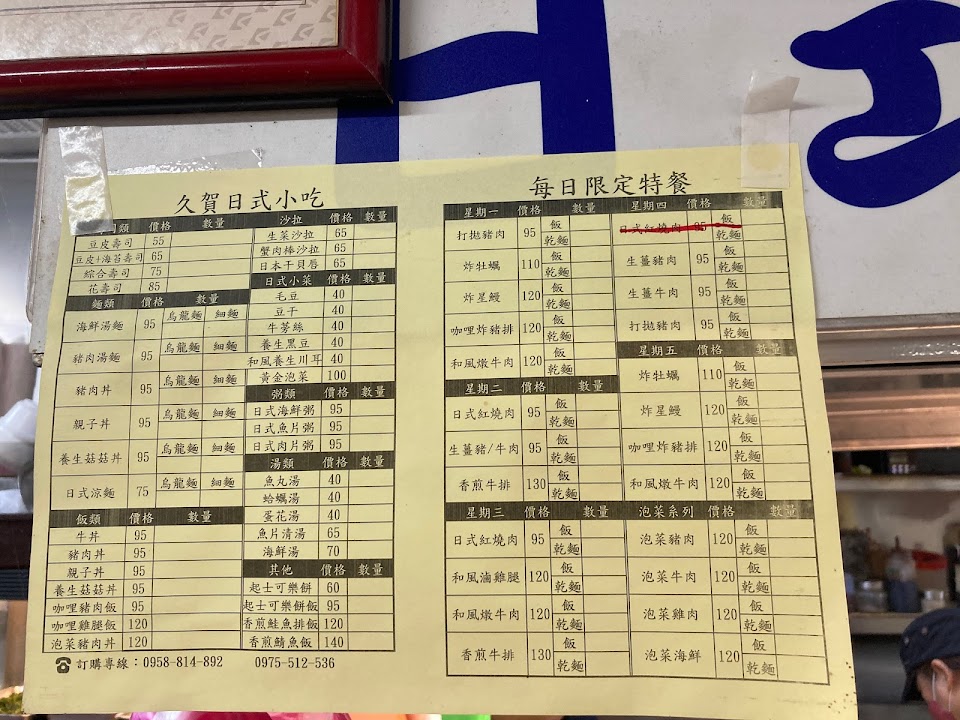 久賀日式小吃
類 價格 數量
豆皮壽司 55
豆皮+海苔壽司 65
綜合壽司 75
花壽司 85
麵類 價格 數量
海鮮湯麵 95 烏龍麵 細麵
豬肉湯麵 95 烏龍麵 細麵
豬肉丼 95 烏龍麵 細麵
親子丼 95 烏龍麵 細麵
養生菇菇丼 95 烏龍麵 細麵
日式涼麵 75 烏龍麵 細麵
飯類 價格 數量
牛丼 95
豬肉丼 95
親子丼 95
養生菇菇丼 95
咖哩豬肉飯 95
咖哩雞腿飯 120
泡菜豬肉丼 120
沙拉 價格 數量
生菜沙拉 65
蟹肉棒沙拉 65
日本干貝唇 65
日式小菜 價格 數量
毛豆 40
豆干 40
牛蒡絲 40
養生黑豆 40
和風養生川耳 40
黃金泡菜 100
粥類 價格 數量
日式海鮮粥 95
日式魚片粥 95
日式肉片粥 95
湯類 價格 數量
魚丸湯 40
蛤蠣湯 40
蛋花湯 40
魚片清湯 65
海鮮湯 70
其他 價格 數量
起士可樂餅 60
起士可樂餅飯 95
香煎鮭魚排飯 120
香煎鯖魚飯 140
訂購專線：0958-814-892 0975-512-536
每日限定特餐
星期一 價格 數量
打拋豬肉 95 飯 乾麵
炸牡蠣 110 飯 乾麵
炸星鰻 120 飯 乾麵
咖哩炸豬排 120 飯 乾麵
和風燉牛肉 120 飯 乾麵
星期二 價格 數量
日式紅燒肉 95 飯 乾麵
生薑豬/牛肉 95 飯 乾麵
香煎牛排 130 飯 乾麵
星期三 價格 數量
日式紅燒肉 95 飯 乾麵
和風滷雞腿 120 飯 乾麵
和風燉牛肉 120 飯 乾麵
香煎牛排 130 飯 乾麵
星期四 價格 數量
日式紅燒肉 95 飯 乾麵
生薑豬肉 95 飯 乾麵
生薑牛肉 95 飯 乾麵
打拋豬肉 95 飯 乾麵
星期五 價格 數量
炸牡蠣 110 飯 乾麵
炸星鰻 120 飯 乾麵
咖哩炸豬排 120 飯 乾麵
和風燉牛肉 120 飯 乾麵
泡菜系列 價格 數量
泡菜豬肉 120 飯 乾麵
泡菜牛肉 120 飯 乾麵
泡菜雞肉 120 飯 乾麵
泡菜海鮮 120 飯 乾麵